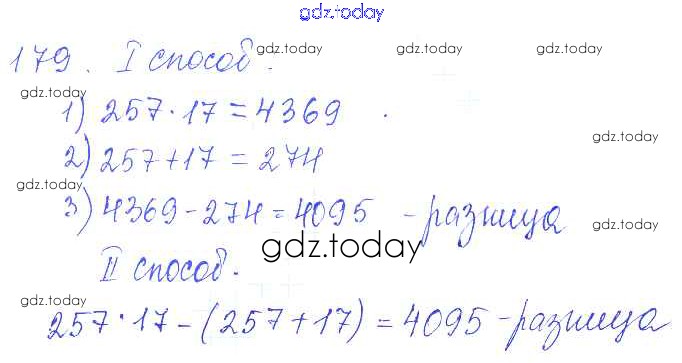 gdz.today
179. I способ.
gdz.today gdz.today gdz.today
1) 257 · 17 = 4369
gdz.today
gdz.today
2) 257 + 17 = 274
gdz.today
3) 4369 - 274 = 4095 - разница
gdz.today
gdz.today
II способ.
gdz.today
gdz.today
257 · 17 - (257 + 17) = 4095 - разница
gdz.today gdz.today